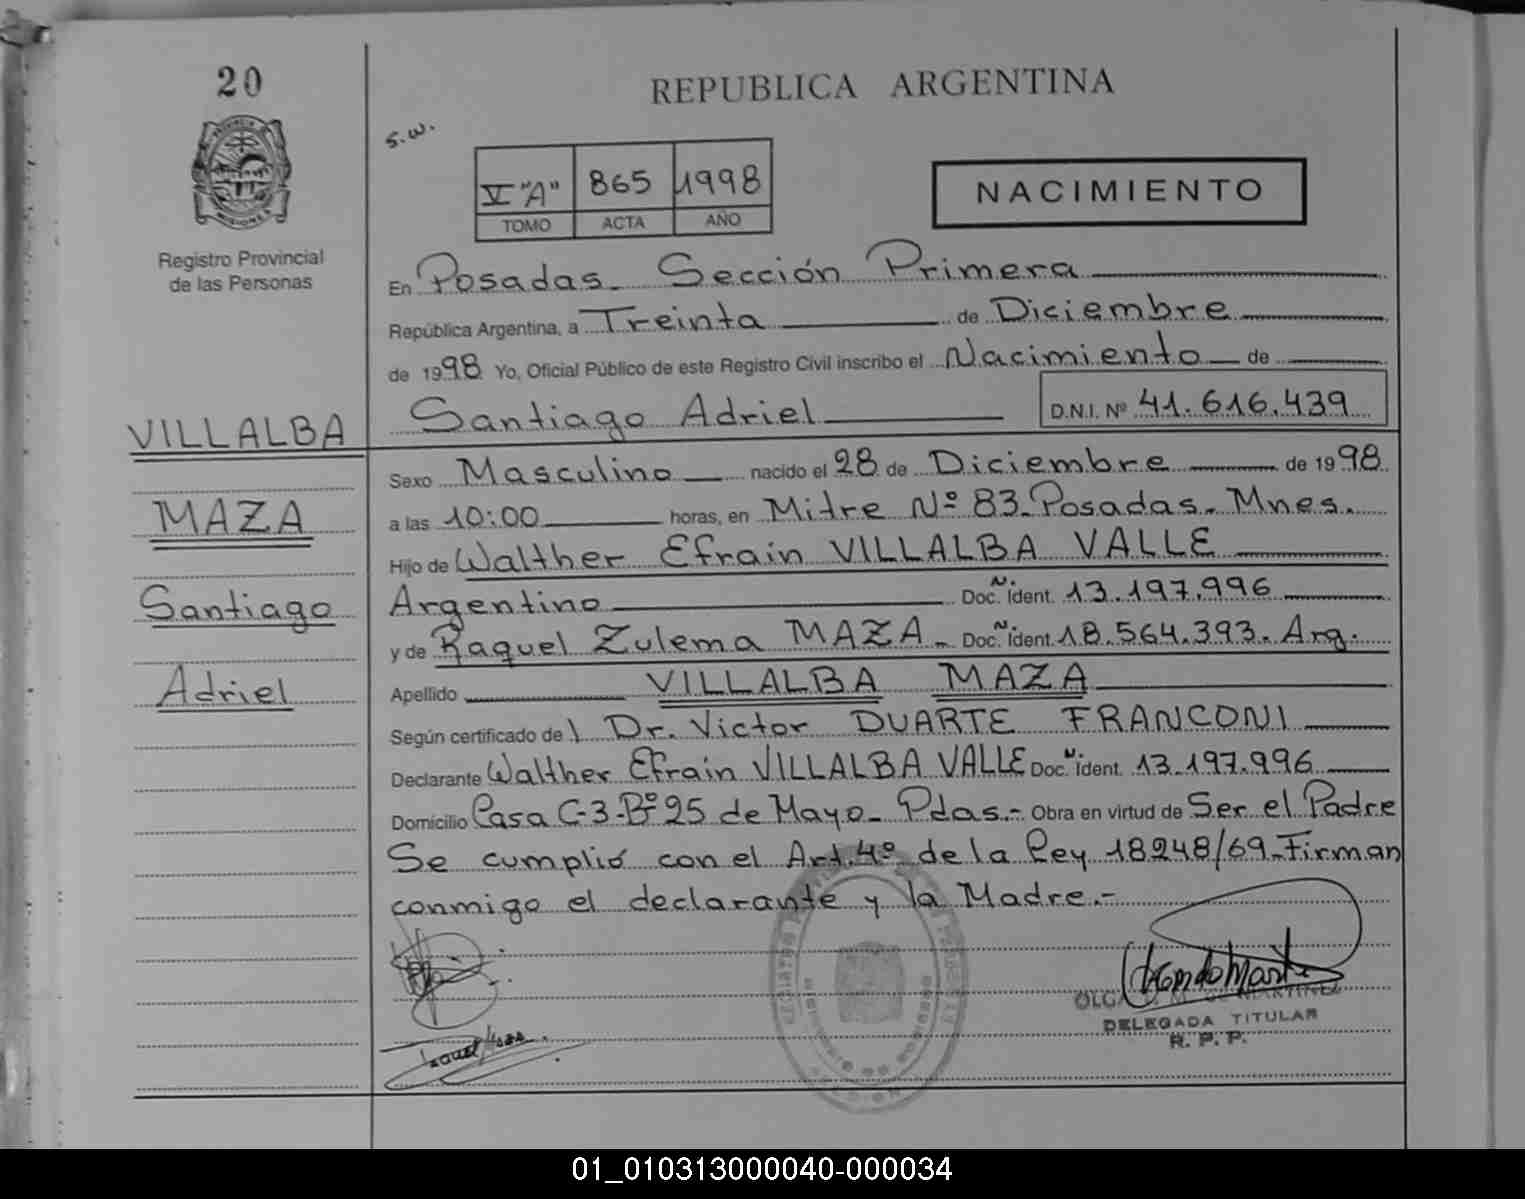 20
REPUBLICA ARGENTINA
s.w.
V "A" 865 1998
TOMO ACTA AÑO
NACIMIENTO
Registro Provincial
de las Personas
En Posadas. Sección Primera
República Argentina, a Treinta de Diciembre
de 1998 Yo, Oficial Público de este Registro Civil inscribo el Nacimiento de
Santiago Adriel D.N.I. Nº 41.616.439
VILLALBA
MAZA
Santiago
Adriel
Sexo Masculino nacido el 28 de Diciembre de 1998
a las 10:00 horas, en Mitre Nº 83. Posadas. Mnes.
Hijo de Walther Efrain VILLALBA VALLE
Argentino Doc. N. Ident. 13.197.996
y de Raquel Zulema MAZA. Doc. N. Ident. 18.564.393. Arg.
Apellido VILLALBA MAZA
Según certificado del Dr. Victor DUARTE FRANCONI
Declarante Walther Efrain VILLALBA VALLE Doc. N. Ident. 13.197.996
Domicilio Casa C-3-Bº 25 de Mayo. Pdas.- Obra en virtud de Ser el Padre
Se cumplió con el Art. 4º de la Ley 18248/69. Firman
conmigo el declarante y la Madre.-
DELEGADA TITULAR
R. P. P.
01_010313000040-000034